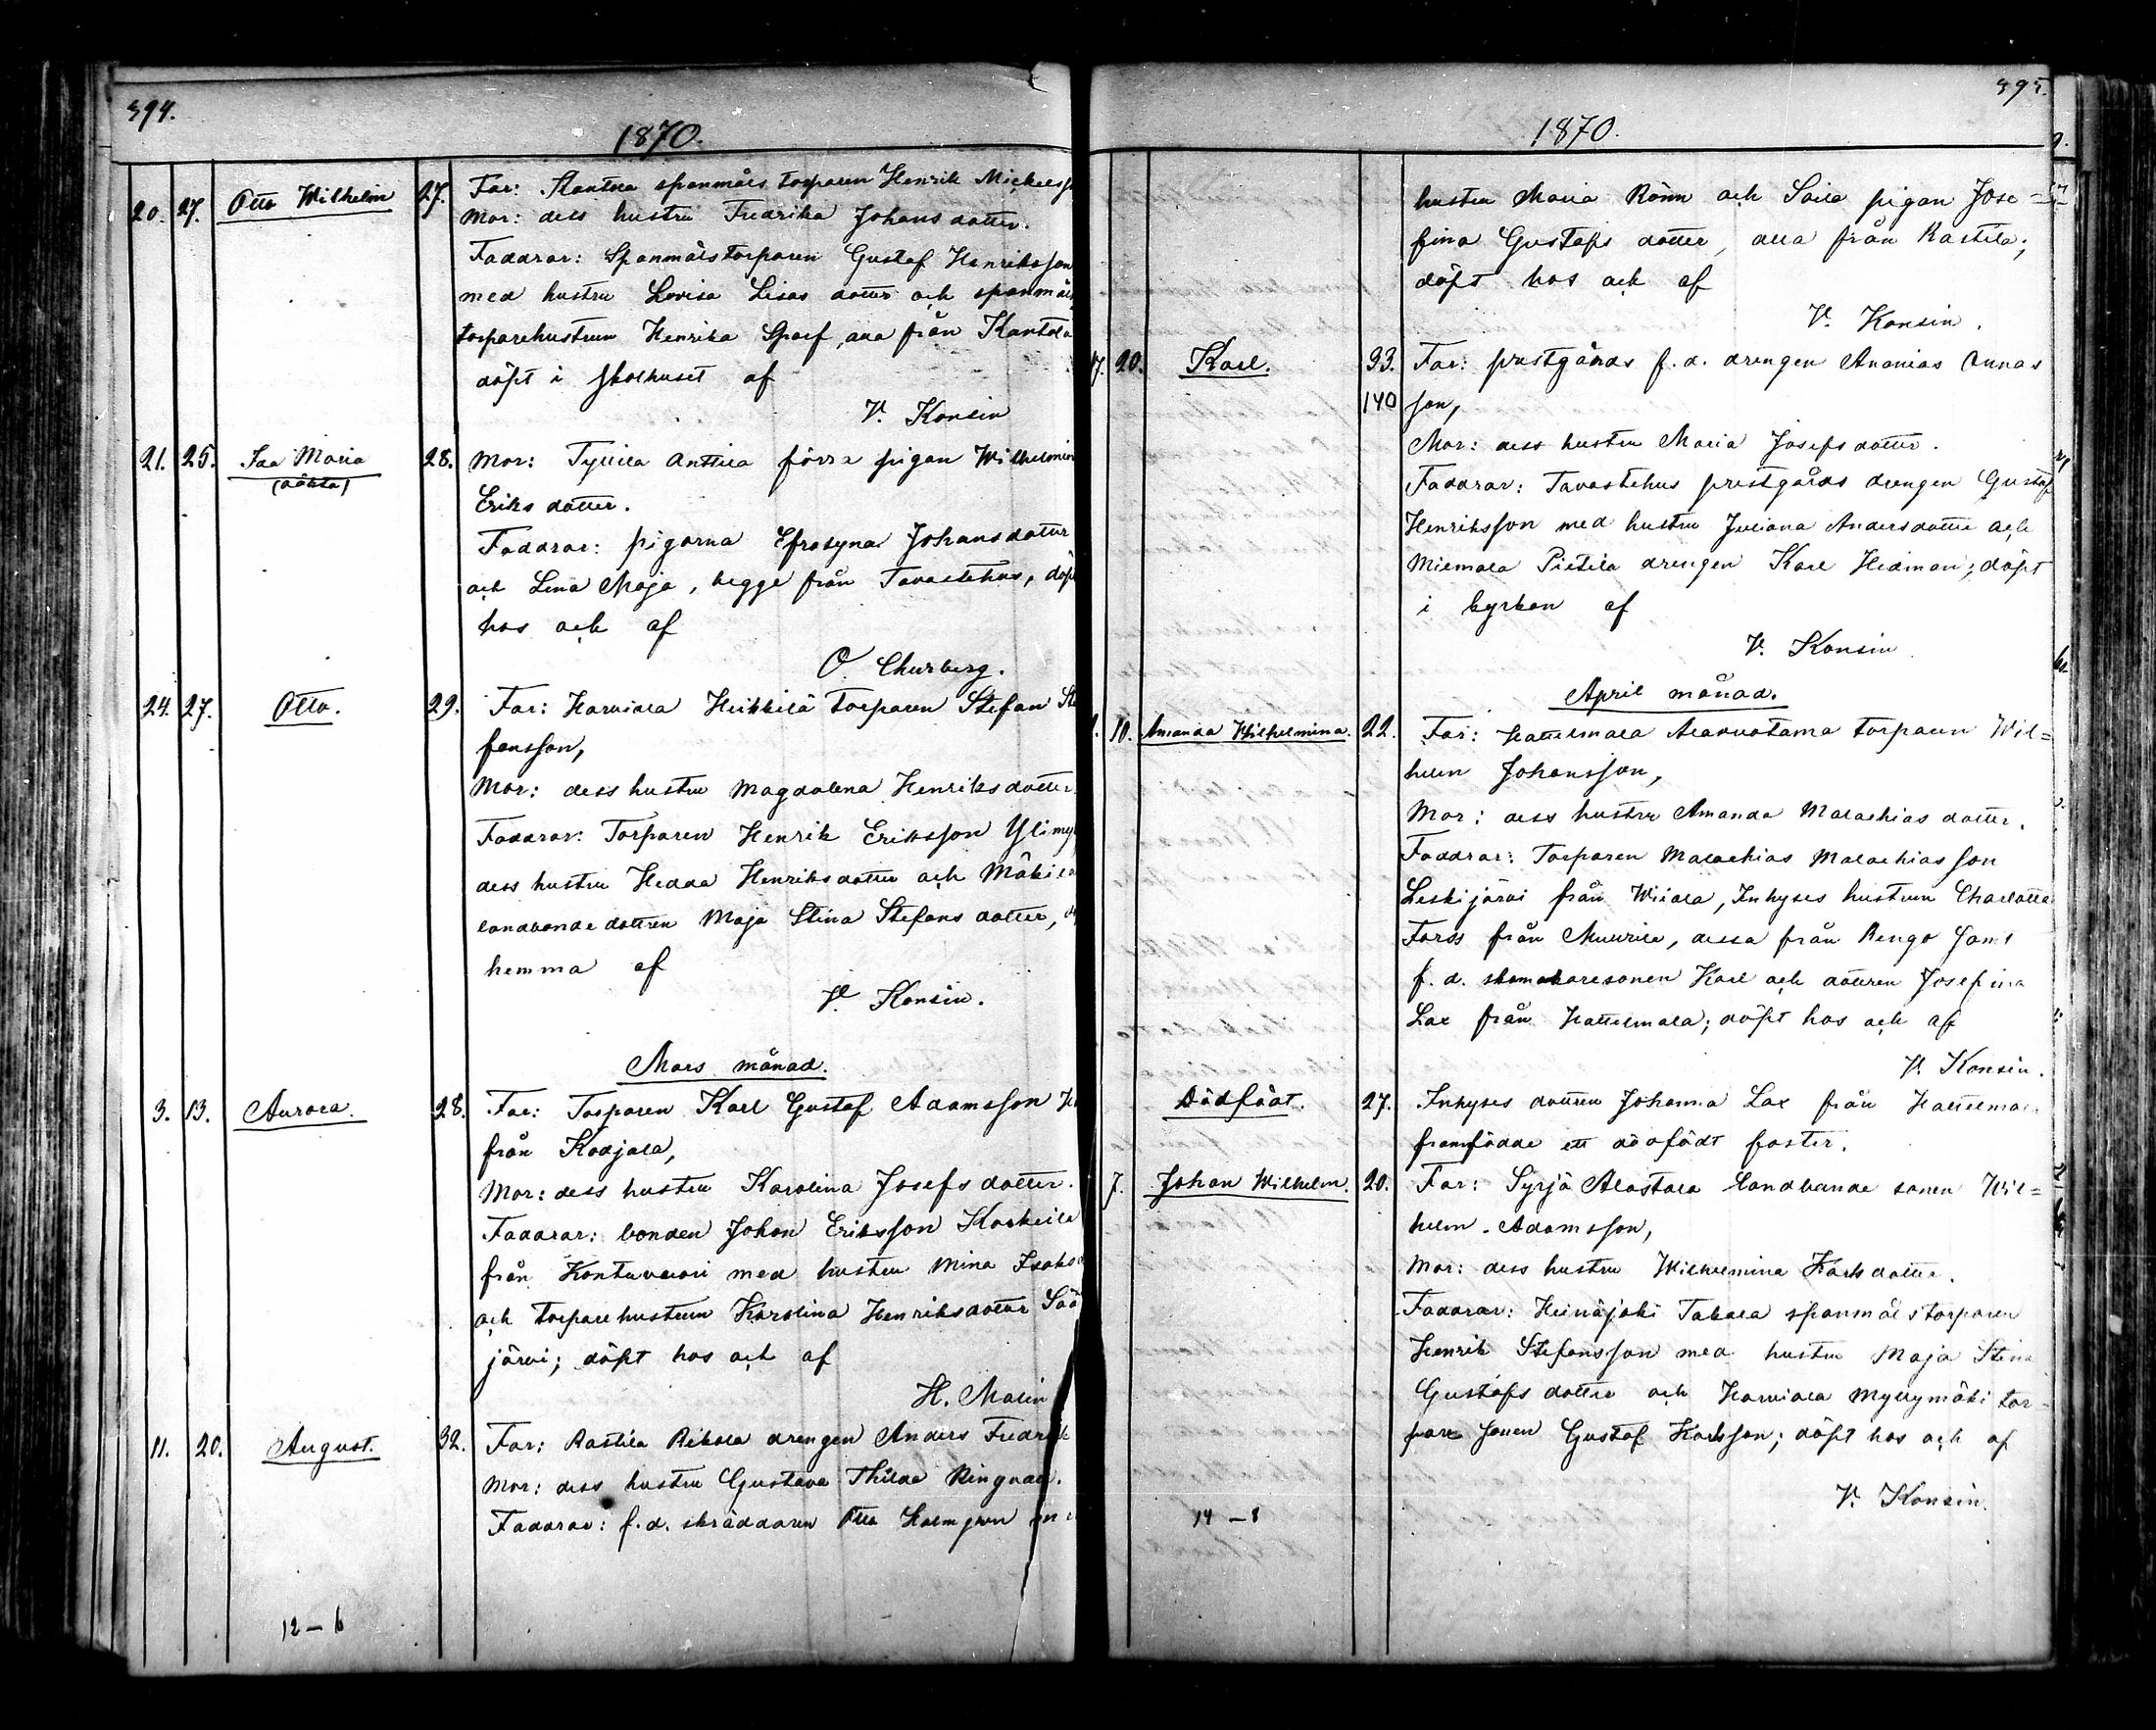 394.
1870.
20. 27. Otto Wilhelm 27. Far: Kantola spanmåls torparen Henrik Mickelss
Mor: dess hustru Fredrika Johans dotter.
Faddrar: Spanmåls torparen Gustaf Henriksson
med hustru Lovisa Lisas dotter och spanmåls
torparehustrun Henrika Spoef, alla från Kantola
döpt i skolhuset af
V. Konsin
21. 25. Ida Maria 28. Mor: Tyllilä Anttila förra pigan Wilhelmin
(oäkta)
Eriks dotter.
Faddrar: pigorna Efrosyna Johansdotter
och Lena Maja, begge från Tavastehus, döpt
hos och af
O. Churberg.
24. 27. Otto. 29. Far: Harviala Heikkilä Torparen Stefan Ste
fansson,
Mor: dess hustru Magdalena Henriksdotter.
Faddrar: Torparen Henrik Eriksson Ylimy
dess hustru Hedda Henriksdotter och Mäkilä
landbonde dottren Maja Stina Stefans dotter, d
hemma af
V. Konsin.
Mars månad.
3. 13. Aurora. 28. Far: Torparen Karl Gustaf Adamsson
från Kodjala,
Mor: dess hustru Karolina Josefs dotter.
Faddrar: bonden Johan Eriksson Koskeila
från Kontuvuori med hustru Mina Isaks
och torparehustrun Karolina Henriksdotter Sää
järvi; döpt hos och af
H. Malin
11. 20. August. 32. Far: Rastila Rikola drengen Anders Fredrik
Mor: dess hustru Gustava Thilda Ringvall.
Faddrar: f.d. skräddaren Otto Holmgren
12 – 6
395.
1870.
hustru Maria Rönn och Soila pigan Jose=
fina Gustafs dotter, alla från Rastila;
döpt hos och af
V. Konsin.
17. 20. Karl. 33. Far: prestgårds f.d. drengen Ananias Annas
140 son,
Mor: dess hustru Maria Josefs dotter.
Faddrar: Tavastehus prestgårds drengen Gustaf
Henriksson med hustru Juliana Andersdotter och
Miemala Pietilä drengen Karl Hedman; döpt
i kyrkan af
V. Konsin
April månad.
10. Amanda Wilhelmina. 22. Far: Hattelmala Alavuotama torparen Wil=
helm Johansson,
Mor: dess hustru Amanda Malachias dotter.
Faddrar: Torparen Malachias Malachias son
Leskijärvi från Wiiala, Inhyses hustrun Charlotta
Forss från Muurila, dessa från Rengo samt
f.d. skomakaresonen Karl och dottren Josefina
Lax från Hattelmala; döpt hos och af
V. Konsin.
Dödfödt. 27. Inhyses dottren Johanna Lax från Hattelmala
framfödde ett dödfödt foster.
7. Johan Wilhelm. 20. Far: Syrjä Alastala landbonde sonen Wil=
helm Adamsson,
Mor: dess hustru Wilhelmina Karls dotter.
Faddrar: Heinäjoki Takala spanmåls torparen
Henrik Stefansson med hustru Maja Stina
Gustafs dotter och Harviala Myllymäki tor=
pare sonen Gustaf Karlsson; döpt hos och af
V. Konsin.
14 – 8